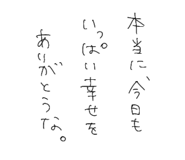 本当に、今日も
いっぱい幸せを
ありがとうな。